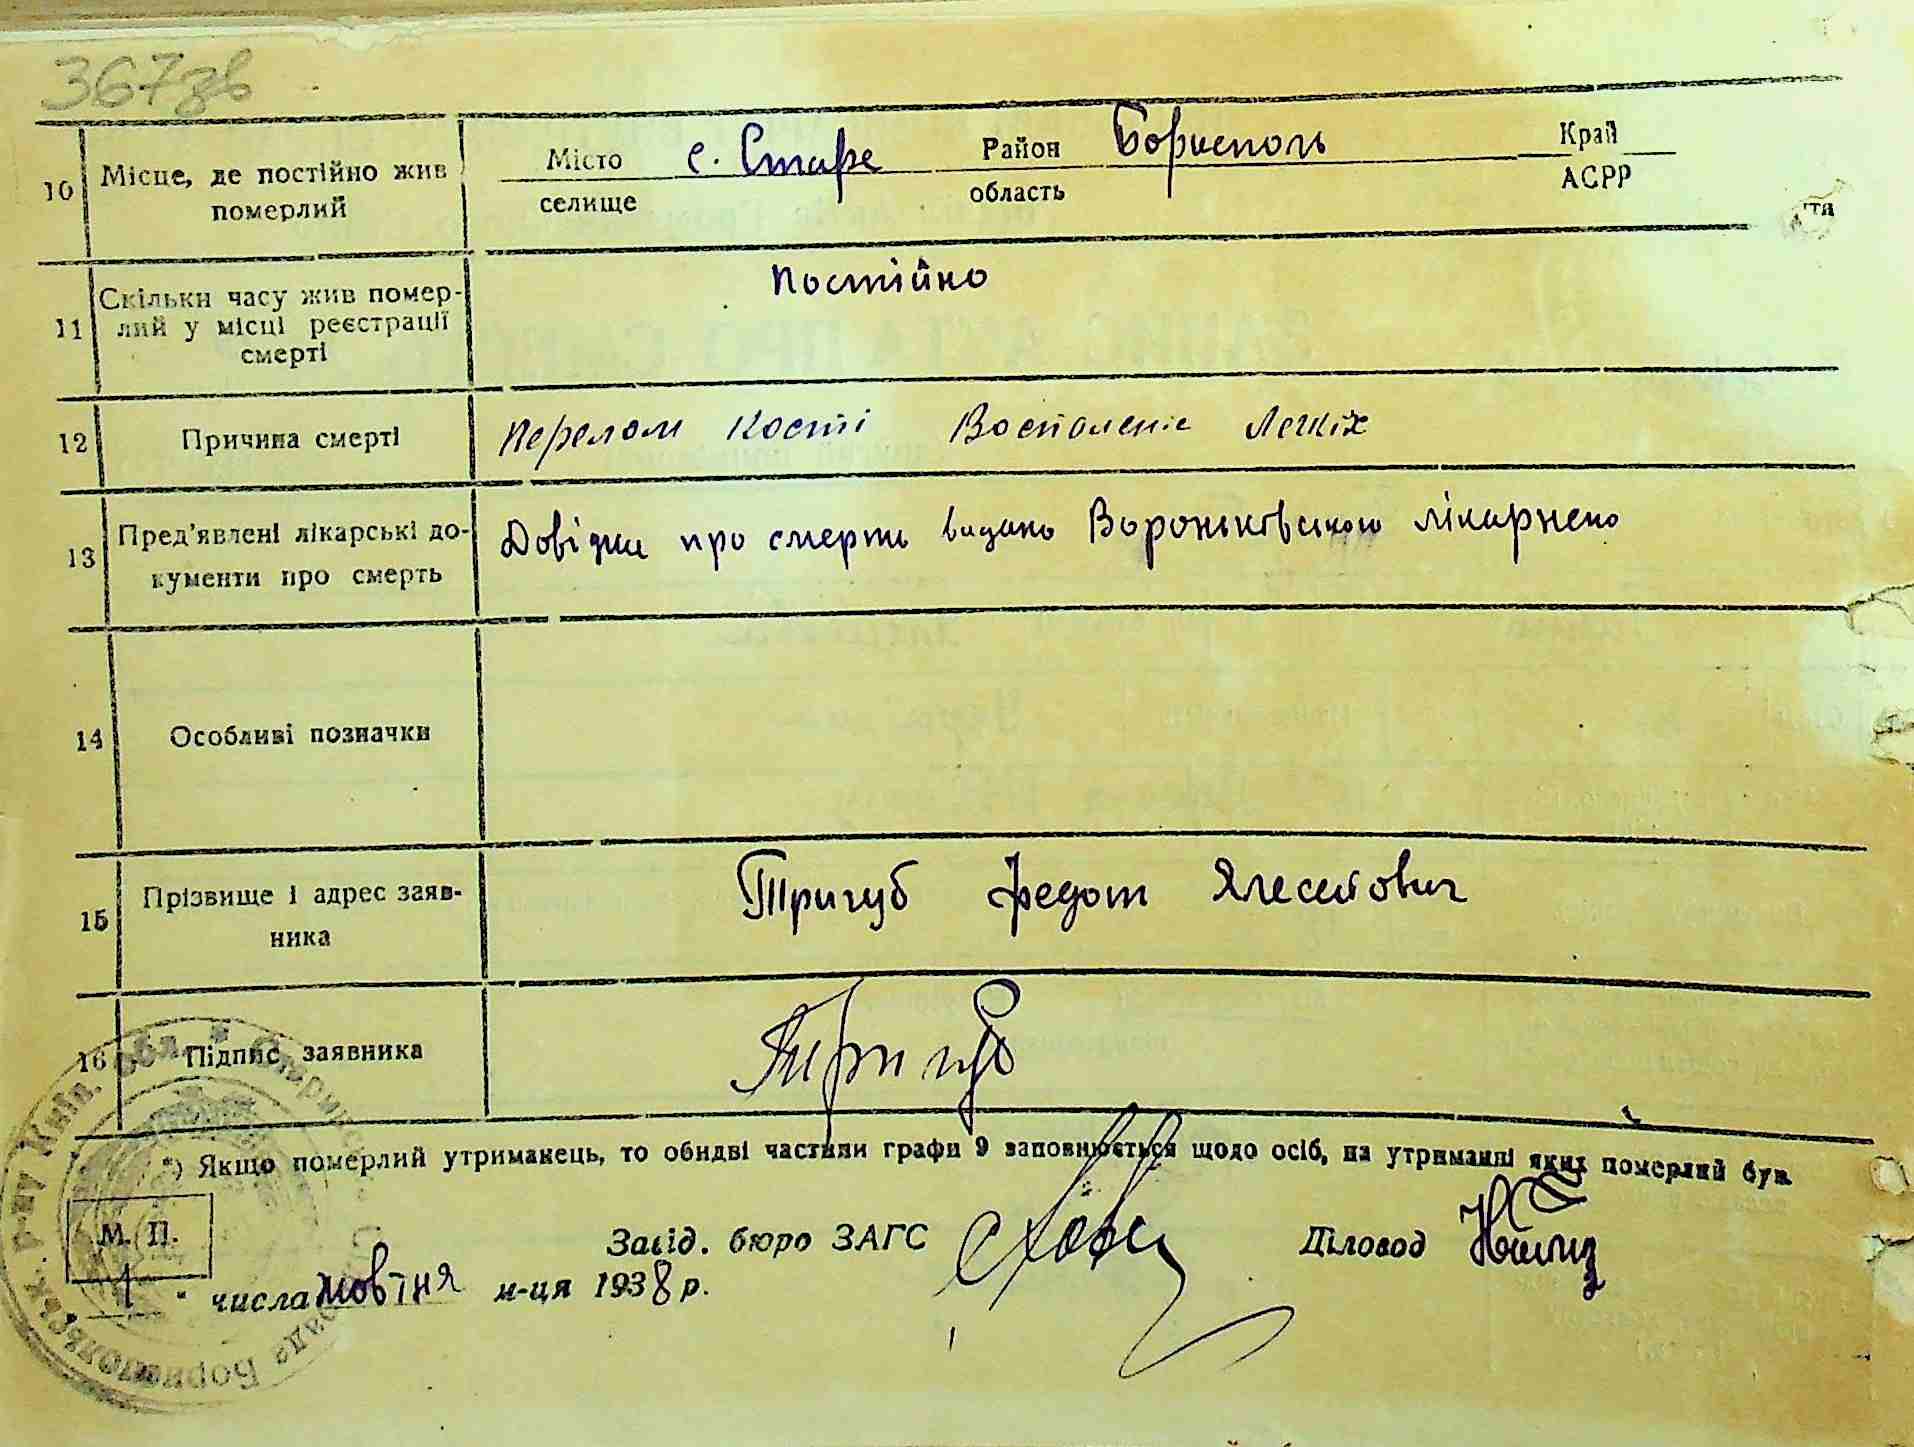 367зв
10 Місце, де постійно жив померлий
Місто с. Старе Район Бориспол Край
селище область АСРР
11 Скільки часу жив помер-
лий у місці реєстрації
смерті
Постійно
12 Причина смерті Перелом Кості Воспаленіе Легкіх
13 Пред'явлені лікарські до-
кументи про смерть
Довідка про смерть видано Вороньківською лікарнею
14 Особливі позначки
15 Прізвище і адрес заяв-
ника
Тригуб Федот
16 Підпис заявника Тригуб
*) Якщо померлий утриманець, то обидві частини графи 9 заповнюється щодо осіб, на утриманні яких померлий був
М. П.
Завід. бюро ЗАГС Діловод
"1" числа жовтня м-ця 1938 р.